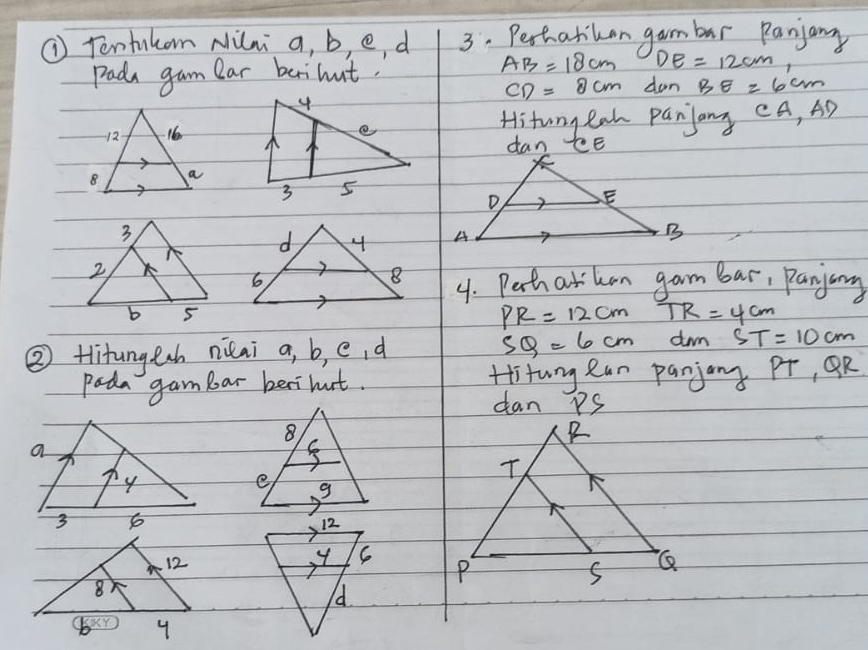 ① Tentukan Nilai a, b, c, d
pada gambar berikut.
12 16
8 a
4
c
3 5
3
2
b 5
d 4
6 8
② Hitunglah nilai a, b, c, d
pada gambar berikut.
a
4
3 6
8
6
c
9
12
8
b 4
KKY
12
4 6
d
3. Perhatikan gambar Panjang
AB = 18 cm DE = 12 cm,
CD = 8 cm dan BE = 6 cm
Hitunglah panjang CA, AD
dan CE
C
D E
A B
4. Perhatikan gambar, panjang
PR = 12 cm TR = 4 cm
SQ = 6 cm dan ST = 10 cm
Hitunglah panjang PT, QR
dan PS
R
T
P S Q